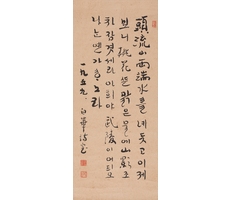 頭流山 兩端水를 녜 듯고 이제
보니 桃花 뜬 맑은 물에 山影조
차 잠겻세라 아희야 武陵이 어디오
나는 옌가 ᄒᆞ노라
一九五九